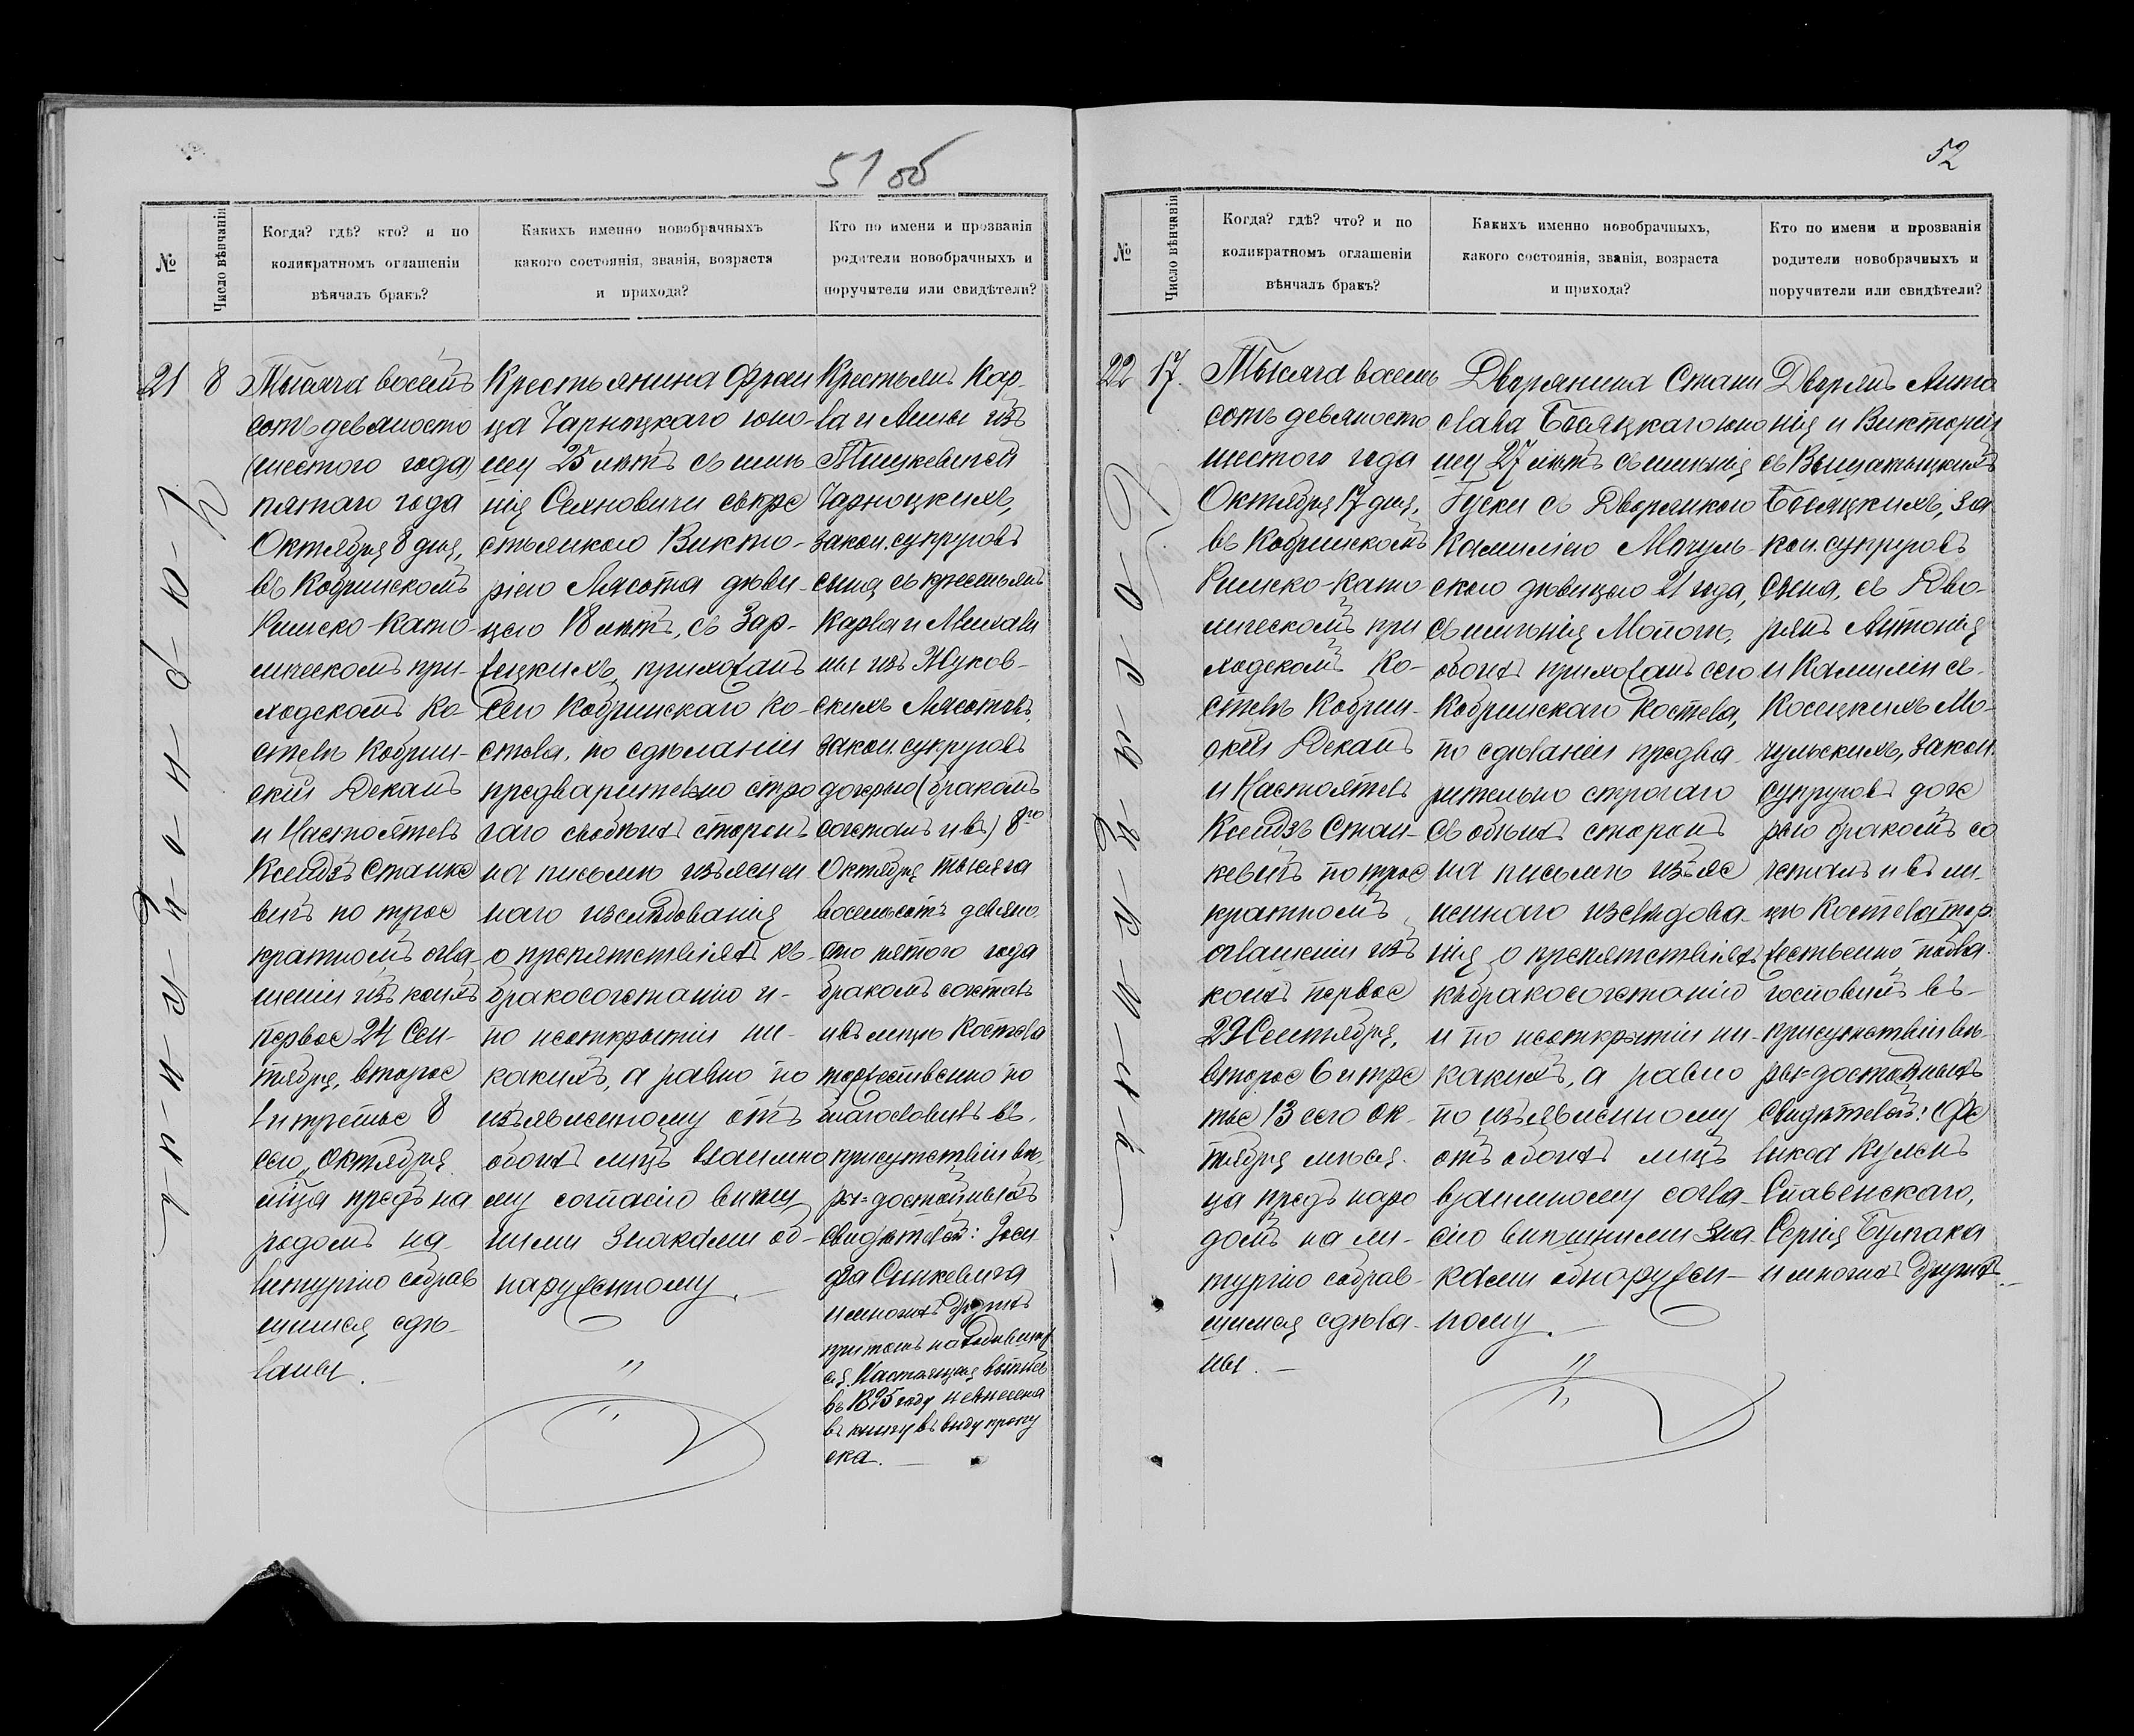 51 об
№
Число вѣнчанія
Когда? гдѣ? кто? и по
коликратномъ оглашеніи
вѣнчалъ бракъ?
Какихъ именно новобрачныхъ
какого состоянія, званія, возраста
и прихода?
Кто по имени и прозванія
родители новобрачныхъ и
поручители или свидѣтели?
21
8
Тысяча восемь
сотъ девяносто
(шестого года)
пятаго года
Октября 8 дня,
въ Кобринскомъ
Римско-Като-
лическомъ при-
ходскомъ Ко-
стелѣ Кобрин-
скій Деканъ
и Настоятель
Ксендзъ Станке
вичъ по трое
кратномъ огла-
шеніи изъ коихъ
первое 24 Сен-
тября, второе
1 и третье 8
сего Октября
м̃ца предъ на
родомъ на
литургію собрав
шимся сдѣ-
ланы.
Крестьянина Фран
ца Чарноцкаго юно-
шу 25 лѣтъ съ имѣ-
нія Сехновичи съ кре
стьянкою Викто-
ріею Лясота дѣви-
цею 18 лѣтъ, съ Зар-
жецкихъ, прихожанъ
Сего Кобринскаго Ко-
стела, по сдѣланіи
предварительно стро
гаго съ обѣихъ сторонъ
на письмѣ изъяснен
наго изслѣдованія
о препятствіяхъ къ
бракосочетанію и-
по неоткрытіи ни-
какихъ, а равно по
изъявленному отъ
обоихъ лицъ взаимно
му согласію внѣш
ними знаками об-
наруженному.
Крестьянъ Кар-
ла и Анны изъ
Тишкевичей
Чарноцкихъ,
закон. супруговъ
сына съ крестьян
Карла и Михали
ны изъ Жуков-
скихъ Лясотовъ
закон. супруговъ
дочерью (бракомъ
сочеталъ и въ) 8го
Октября тысяча
восемьсотъ девяно
сто пятого года
бракомъ сочеталъ
и въ лицѣ Костела
торжественно по
благословилъ въ
присутствіи вѣ-
ры-достойныхъ
свидѣтелей: Іоси
фа Синкевича
и многихъ другихъ
при томъ находивших
ся. Настоящая выпись
въ 1895 году не внесена
въ книгу въ виду пропу
ска.
52
№
Число вѣнчанія
Когда? гдѣ? что? и по
коликратномъ оглашеніи
вѣнчалъ бракъ?
Какихъ именно новобрачныхъ,
какого состоянія, званія, возраста
и прихода?
Кто по имени и прозванія
родители новобрачныхъ и
поручители или свидѣтели?
22
17.
Тысяча восемь
сотъ девяносто
шестого года
Октября 17 дня,
въ Кобринскомъ
Римско-Като
лическомъ при
ходскомъ Ко-
стелѣ Кобрин-
скій Деканъ
и Настоятель
Ксендзъ Стан-
кевичъ по трое
кратномъ
оглашеніи изъ
коихъ первое
29 Сентября,
второе 6 и тре
тье 13 сего Ок-
тября мѣся-
ца предъ наро
домъ на ли-
тургію собрав-
шимся сдѣла-
ны.
Дворянина Стани
слава Бѣляцкаго юно
шу 27 лѣтъ съ имѣнія
Гуски съ Дворянкою
Камиліею Могуль-
скою дѣвицею 21 года,
съ имѣнія
обоихъ прихожанъ сего
Кобринскаго Костела,
по сдѣланіи предва-
рительно строгаго
съ обѣихъ сторонъ
на письмѣ изъяс
неннаго изслѣдова-
нія о препятствіяхъ
къ бракосочетанію
и по неоткрытіи ни-
какихъ, а равно
по изъявленному
отъ обоихъ лицъ
взаимному согла-
сію внѣшними зна-
ками обнаружен-
ному.
Дворянъ Анто
нія и Викторіи
съ
Бѣляцкихъ, за
кон. супруговъ
Сына, съ Дво-
рянъ Антонія
и Камиліи съ
Косецкихъ Мо-
гульскихъ, закон.
супруговъ доче
рью бракомъ со
четалъ и въ ли-
цѣ Костела тор
жественно побла-
гословилъ въ
присутствіи вѣ-
ры-достойныхъ
Свидѣтелей: Фе
ликса
Славенскаго,
Сергія Булгака
и многихъ другихъ.